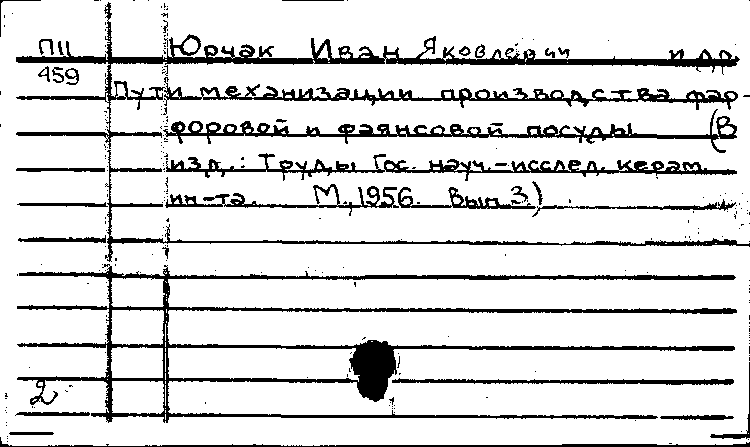 П11 Юрчак Иван Яковлевич и др.
459
Пути механизации производства фар-
форовой и фаянсовой посуды (В
изд.: Труды Гос. науч.-исслед. керам.
ин-та. М., 1956. Вып. 3.)
2